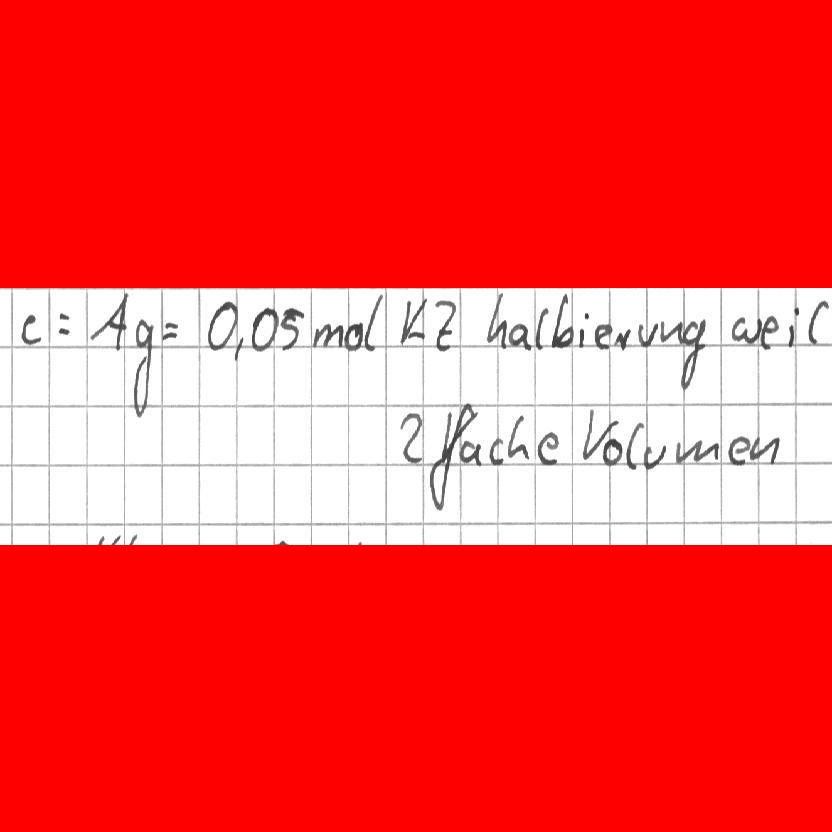 c = Ag = 0,05 mol KZ halbierung weil
2 fache Volumen